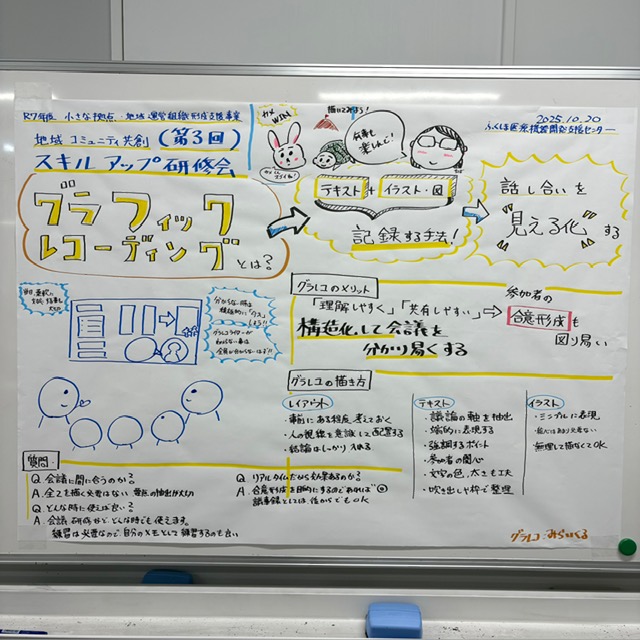 R7年度 小さな拠点・地域運営組織形成支援事業
地域コミュニティ共創(第3回)
スキルアップ研修会
2025.10.20
ふくしま医療機器開発支援センター
カメ
WIN!
描いてみよう!
仕事も
楽しんで!
グラフィック
レコーディングとは?
テキスト + イラスト・図
記録する手法!
話し合いを
"見える化"する
グラレコのメリット
「理解しやすく」「共有しやすい」⇒
参加者の
合意形成も
図り易い
構造化して会議を
分かり易くする
グラレコの描き方
レイアウト
・事前にある程度考えておく
・人の視線を意識して配置する
・結論はしっかり入れる
テキスト
・議論の軸を抽出
・端的に表現する
・強調するポイント
・参加者の関心
・文字の色、太さも工夫
・吹き出しや枠で整理
イラスト
・シンプルに表現
・無理して描なくてOK
質問・
Q. 会議に間に合うのか?
A. 全てを描く必要はない
Q. どんな時に使えば良い?
A. 会議、研修など、どんな時でも使えます。
練習は必要なので、自分のメモとして練習するのも良い
Q. リアルタイムだから効果あるのか?
A. 合意形成を目的にするのであれば◎
議事録としては後からでもOK
グラレコ:みらいくる